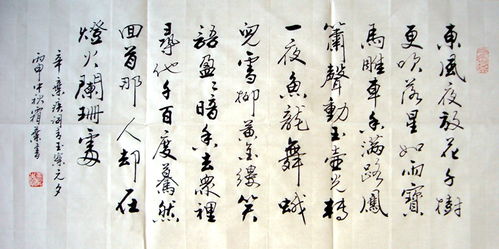 東風夜放花千樹
更吹落星如雨寶
馬雕車香滿路鳳
簫聲動玉壺光轉
一夜魚龍舞蛾
兒雪柳黃金縷笑
語盈盈暗香去衆裡
尋他千百度驀然
回首那人却在
燈火闌珊處
辛棄疾詞青玉案元夕
丙申中秋霜葉書